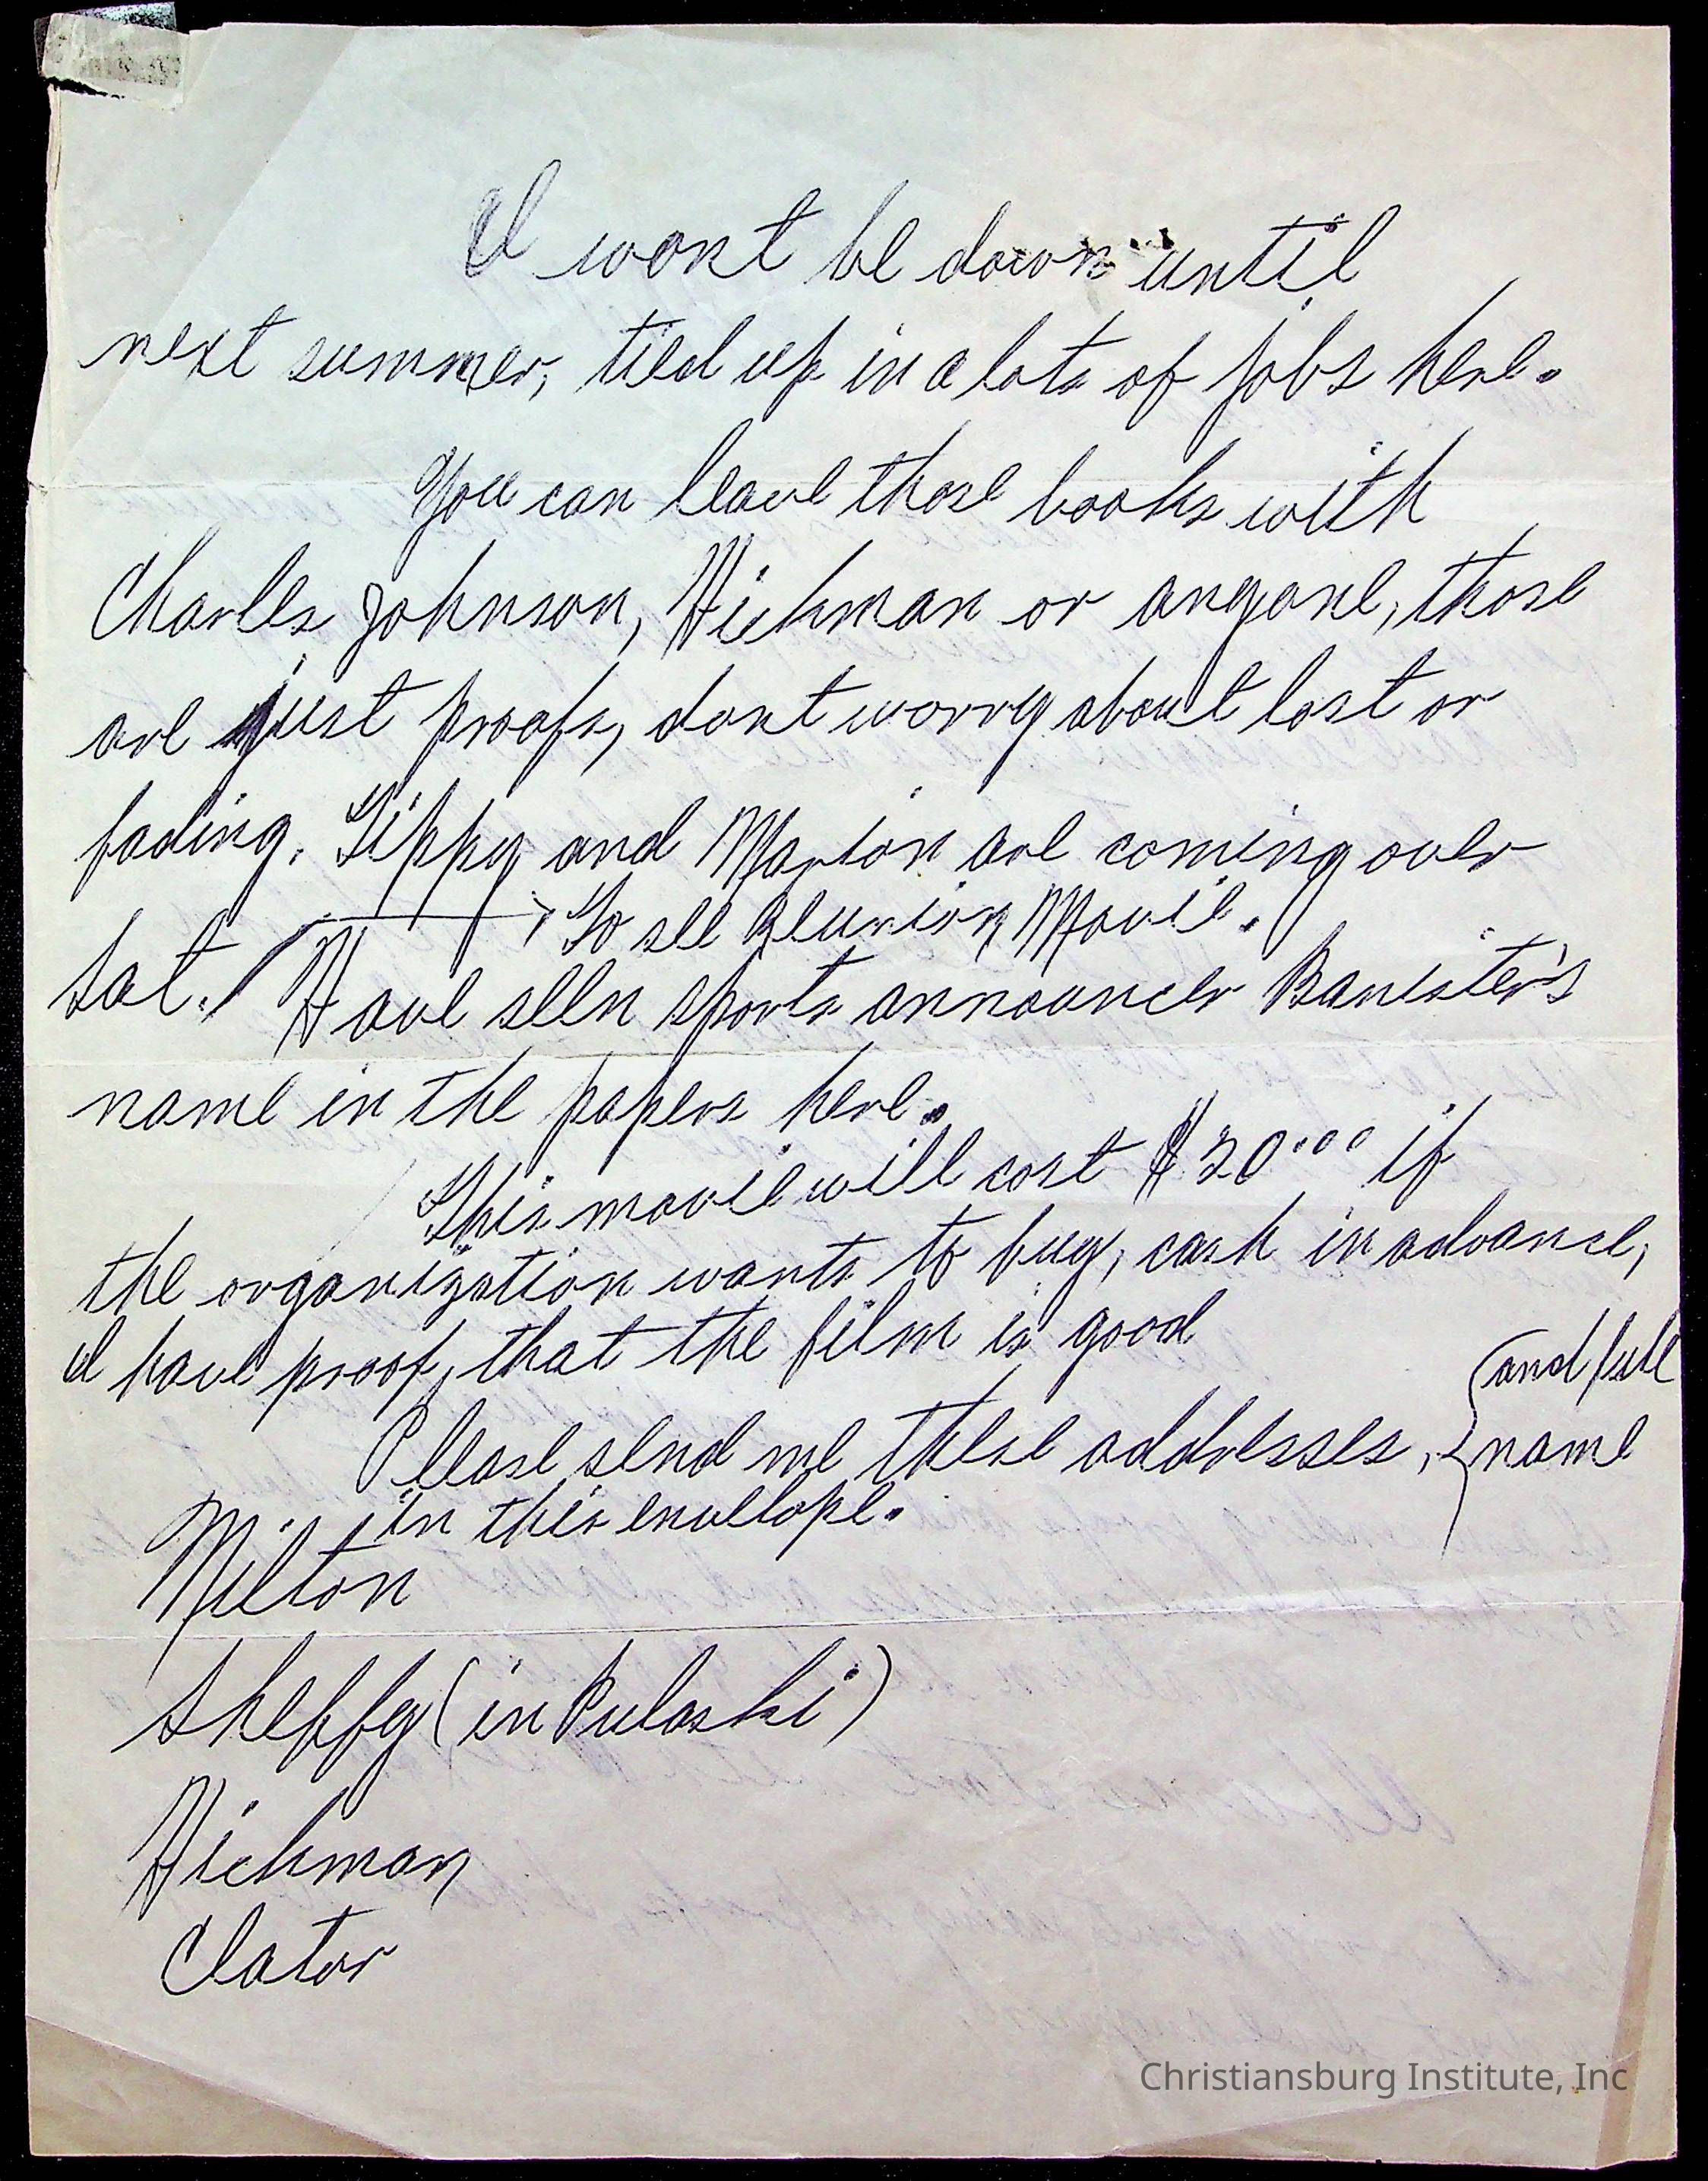 I wont be down until
next summer, tied up in a lots of jobs here.
You can leave those books with
Charles Johnson, Hickman or anyone, those
are just proofs, dont worry about lost or
fading. Tippy and Marion are coming over
Sat. To see Reunion Movie.
Have seen sports announcer Banister's
name in the papers here.
This movie will cost $20.00 if
the organization wants to buy, cash in advance,
I have proof, that the film is good
Please send me these addresses, {and full
name
in this envelope.
Milton
Sheffey (in Pulaski)
Hickman
Clator
Christiansburg Institute, Inc